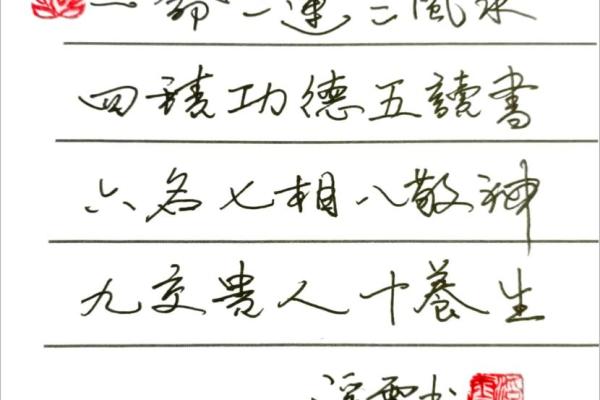 一命二運三風水
四積功德五讀書
六名七相八敬神
九交貴人十養生